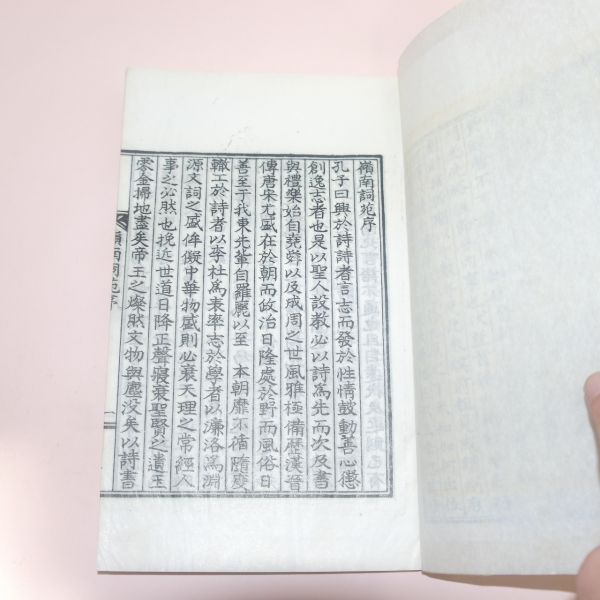 嶺南詞苑序
孔子曰興於詩詩者言志而發於性情鼓動善心懲
創逸志者也是以聖人設教必以詩爲先而次及書
與禮樂始自堯舜以及成周之世風雅極備歷漢晉
傳唐宋尤盛在於朝而政治日隆處於野而風俗日
善至于我東先輩自羅麗以至本朝靡不循隨變
轍工於詩者以李杜爲表率志於學者以濂洛爲淵
源文詞之盛侔擬中華物盛則必衰天理之常經人
事之必然也挽近世道日降正聲寢衰聖賢之遺玉
零金掃地盡矣帝王之燦然文物與塵没矣以詩書
嶺南詞苑序